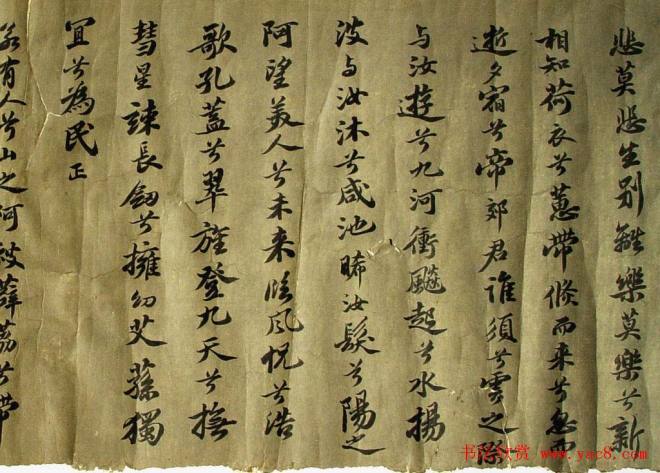 悲莫悲生别離樂莫樂兮新
相知荷衣兮蕙帶倏而来兮忽而
逝夕宿兮帝郊君谁須兮雲之際
与汝遊兮九河衝飈起兮水揚
波与汝沐兮咸池晞汝髮兮陽之
阿望美人兮未来临风怳兮浩
歌孔蓋兮翠旌登九天兮撫
彗星竦長劔兮擁幼艾蓀獨
宜兮為民正
若有人兮山之阿被薜荔兮帶
书法欣赏 www.yac8.com